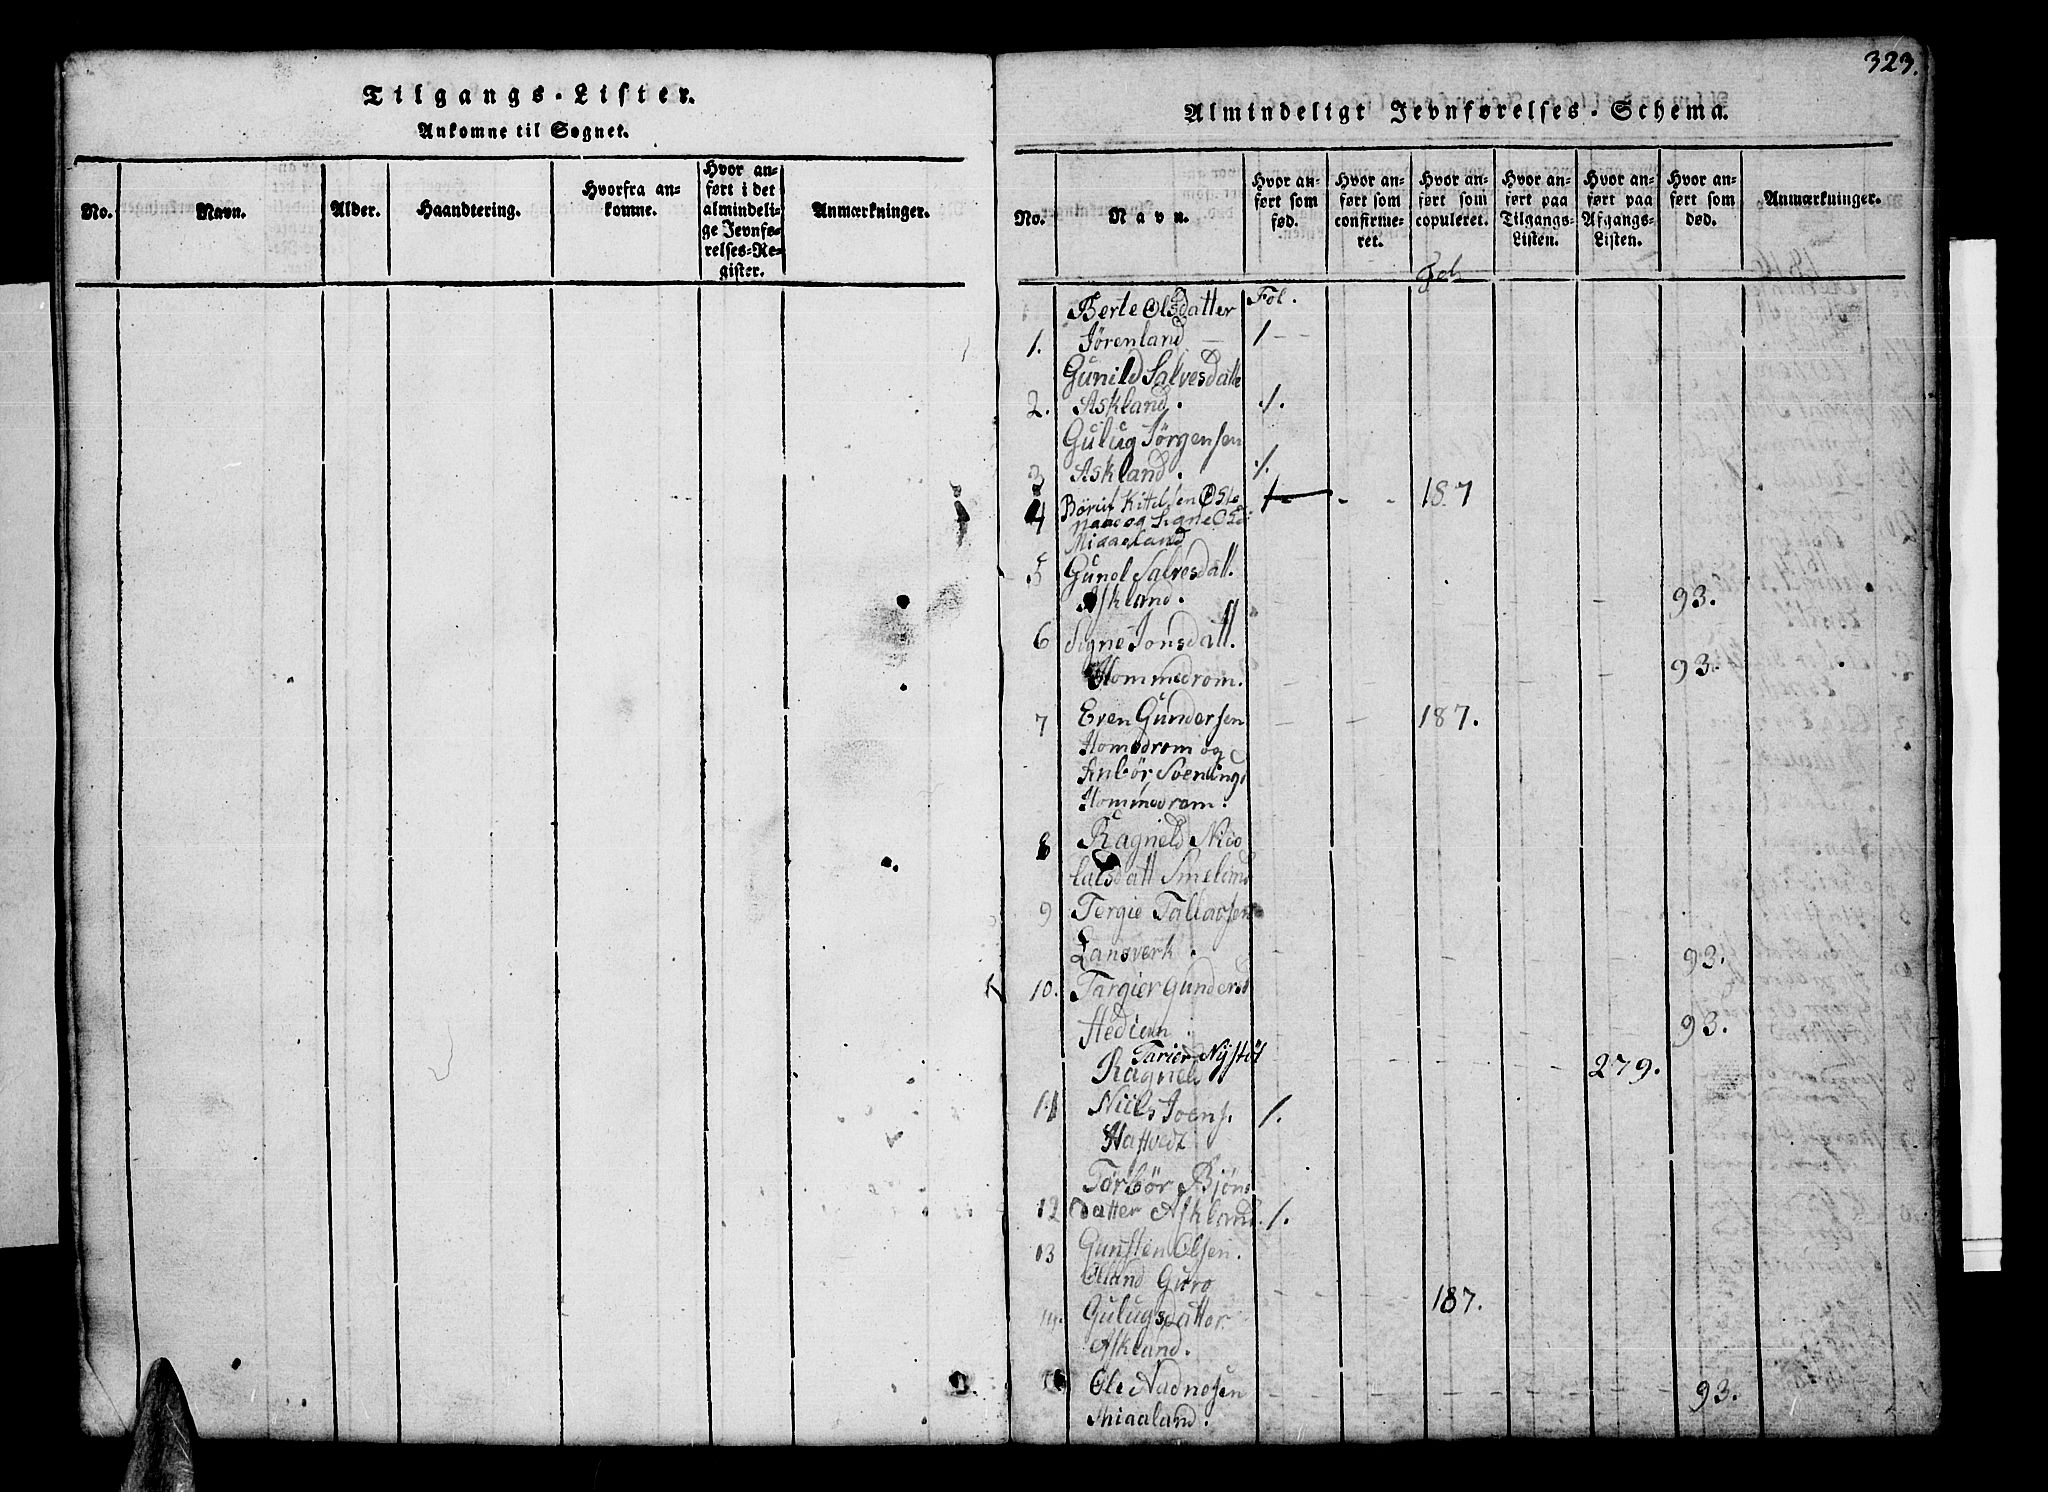 Tilgangs-Lister.
Ankomne til Sognet.
No.
Navn.
Alder.
Haandtering.
Hvorfra an-
komne.
Hvor an-
ført i det
almindeli-
ge Jevnfø-
relses-Re-
gister.
Anmærkninger.
323.
Almindeligt Jevnførelses-Schema.
No.
Navn.
Hvor an-
ført som
fød.
Hvor an-
ført som
confirme-
ret.
Hvor an-
ført som
copuleret.
Hvor an-
ført paa
Tilgangs-
Listen.
Hvor an-
ført paa
Afgangs-
Listen.
Hvor an-
ført som
død.
Anmærkninger.
Fol.
Berte Olsdatter Fol.
1. Jørenland 1
Gunild Salvesdatte
2. Askland. 1.
Gulug Jørgensen
3 Askland. 1.
4 Børuf Kittelsen 1 187
og Signe
Miaaland
5 Gunel Salvesdatt.
Askland. 93.
6 Signe Jonsdatt.
Hommedrom. 93.
7 Even Gundersen 187.
Homedrom og
Anbør Svenings
Hommedrom.
8 Ragneld Nico
laisdatt Smeland
9 Tergie Tallaosen
Lansverk. 93.
10. Targier Gunders
Hediem 93.
Tarier Nystøl
Ragneld 279.
11 Niels Joens. 1.
Haftvedt
Torbør Bjøns
12 datter Askland. 1.
13 Gunsten Olsen.
Øland Guro 187.
14. Gulugsdatter
Askland.
Ole Aadnosen 93.
Miaaland.